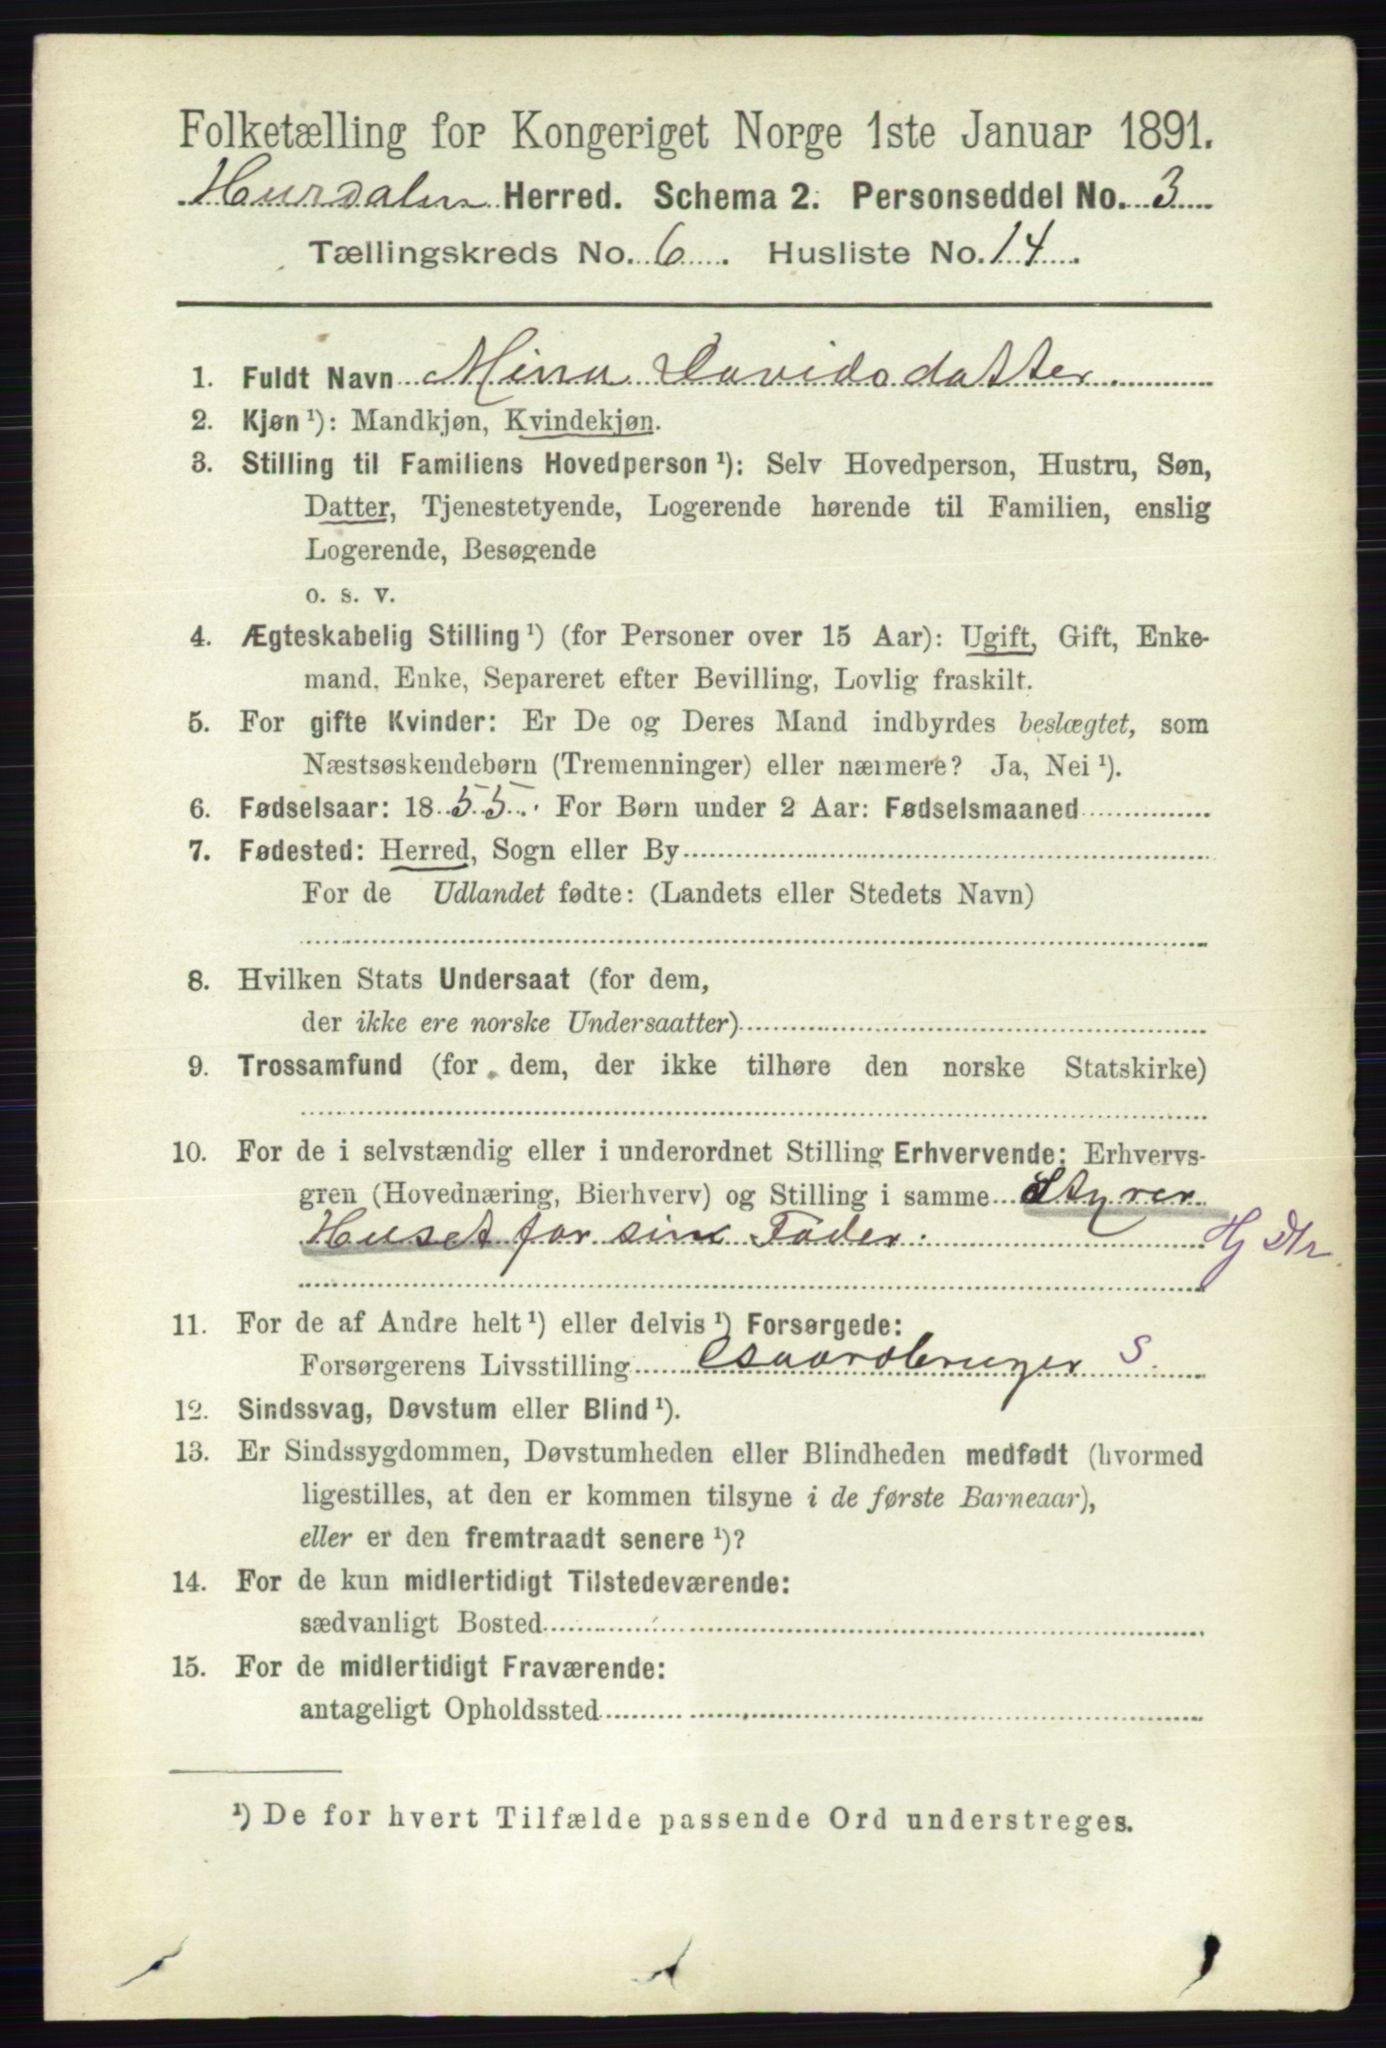 Folketælling for Kongeriget Norge 1ste Januar 1891.
Hurdalen Herred. Schema 2. Personseddel No. 3
Tællingskreds No. 6. Husliste No. 14.
1. Fuldt Navn Mina Davidsdatter.
2. Kjøn ¹): Mandkjøn, Kvindekjøn.
3. Stilling til Familiens Hovedperson ¹): Selv Hovedperson, Hustru, Søn,
Datter, Tjenestetyende, Logerende hørende til Familien, enslig
Logerende, Besøgende
o. s. v.
4. Ægteskabelig Stilling ¹) (for Personer over 15 Aar): Ugift, Gift, Enke-
mand, Enke, Separeret efter Bevilling, Lovlig fraskilt.
5. For gifte Kvinder: Er De og Deres Mand indbyrdes beslægtet, som
Næstsøskendebørn (Tremenninger) eller nærmere? Ja, Nei ¹).
6. Fødselsaar: 1855. For Børn under 2 Aar: Fødselsmaaned
7. Fødested: Herred, Sogn eller By
For de Udlandet fødte: (Landets eller Stedets Navn)
8. Hvilken Stats Undersaat (for dem,
der ikke ere norske Undersaatter)
9. Trossamfund (for dem, der ikke tilhøre den norske Statskirke)
10. For de i selvstændig eller i underordnet Stilling Erhvervende: Erhvervs-
gren (Hovednæring, Bierhverv) og Stilling i samme Styrer
Huset for sin Fader. Hj Dtr
11. For de af Andre helt ¹) eller delvis ¹) Forsørgede:
Forsørgerens Livsstilling Gaardbruger S.
12. Sindssvag, Døvstum eller Blind ¹).
13. Er Sindssygdommen, Døvstumheden eller Blindheden medfødt (hvormed
ligestilles, at den er kommen tilsyne i de første Barneaar),
eller er den fremtraadt senere ¹)?
14. For de kun midlertidigt Tilstedeværende:
sædvanligt Bosted
15. For de midlertidigt Fraværende:
antageligt Opholdssted
¹) De for hvert Tilfælde passende Ord understreges.